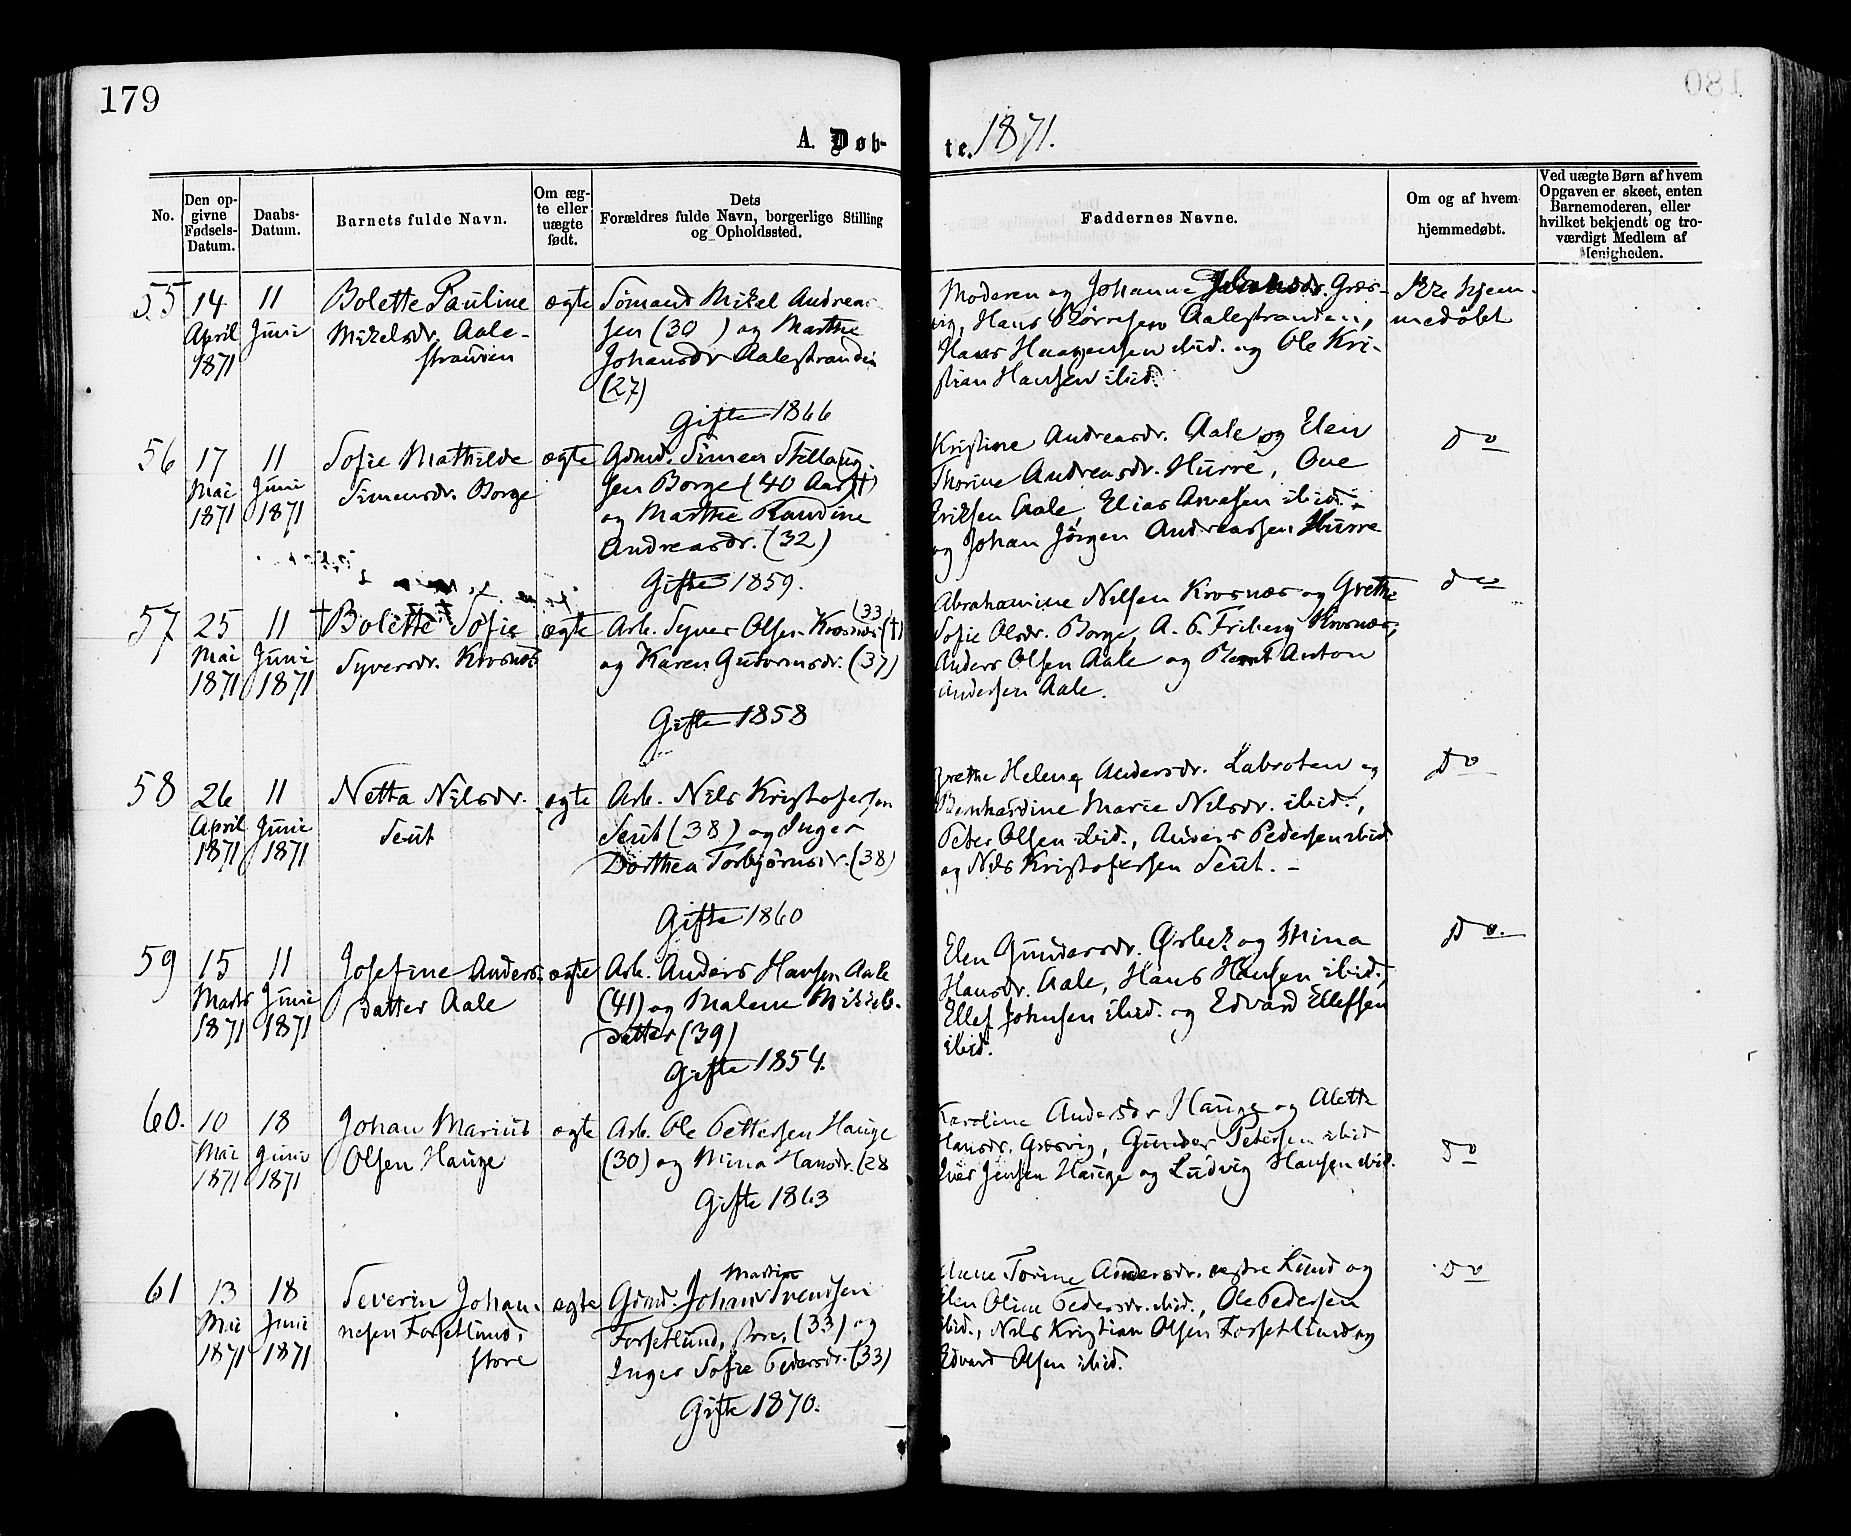 179
180
A. Døb-
te. 1871.
No.
Den op-
givne
Fødsels-
Datum.
Daabs-
Datum.
Barnets fulde Navn.
Om æg-
te eller
uægte
født.
Dets
Forældres fulde Navn, borgerlige Stilling
og Opholdssted.
Faddernes Navne.
Om og af hvem
hjemmedøbt.
Ved uægte Børn af hvem
Opgaven er skeet, enten
Barnemoderen, eller
hvilket bekjendt og tro-
værdigt Medlem af
Menigheden.
55
14
April
1871
11
Juni
Bolette Pauline
Mikelsdr. Aale-
stranden
ægte
Sömand Mikel Andreas-
sen (30) og Marthe
Johansdr Aalestranden
(27)
Gifte 1866
Moderen og Johanne Græs-
vig, Hans Börresen Aalestranden,
Hans Haagensen ibid. og Ole Kri-
stian Hansen ibid.
Ikke hjem-
medöbt
56
17
Mai
1871
11
Juni
1871
Sofie Mathilde
Simensdr. Borge
ægte
Gdmd. Simen Stillaug-
sen Borge (40 Aar) (†)
og Marthe Randine
Andreasdr. (32)
Gifte 1859.
Kristine Andreasdr. Aale og Elen
Thorine Andreasdr. Hurre, Ove
Eriksen Aale, Elias Arvesen ibid.
og Johan Jörgen Andreassen Hurre
do
57
25
Mai
1871
11
Juni
1871
† Bolette Sofie
Syversdr. Krosnæs
ægte
Arb. Syver Olsen Krosnæs (33) (†)
og Karen Gutormsdr. (37)
Gifte 1858
Abrahamine Nilsen Krosnæs og Grethe
Sofie Olsdr. Borge, A. C. Friberg Krosnæs,
Anders Olsen Aale og Bernt Anton
Andersen Aale.
do
58
26
April
1871
11
Juni
1871
Netta Nilsdr.
Seut
ægte
Arb. Nils Kristofersen
Seut (38) og Inger
Dorthea Torbjörnsdr. (38)
Gifte 1860
Grethe Helene Andersdr. Labroten og
Bernhardine Marie Nilsdr. ibid.,
Peter Olsen ibid., Anders Pedersen ibid
og Nils Kristofersen Seut. -
do
59
15
Marts
1871
11
Juni
1871
Josefine Anders-
datter Aale
ægte
Arb. Anders Hansen Aale
(41) og Malene Mikkels-
datter (39)
Gifte 1854.
Elen Gundersdr. Ørbek og Mina
Hansdr. Aale, Hans Hansen ibid.,
Ellef Johnsen ibid. og Edvard Ellefsen
ibid.
do.
60.
10
Mai
1871
18
Juni
1871
Johan Marius
Olsen Hauge
ægte
Arb. Ole Pettersen Hauge
(30) og Mina Hansdr. (28
Gifte 1863
Karoline Andersdr Hauge og Alette
Hansdr. Græsvig, Gunder Petersen ibid
Iver Jensen Hauge og Ludvig Hansen ibid.
do
61
13
Mai
1871
18
Juni
1871
Severin Johan-
nesen Forsetlund,
store
ægte
Martin
Gdmd. Johan Svendsen
Forsetlund, store, (33) og
Inger Sofie Pedersdr. (33)
Gifte 1870.
Torine Andersdr. vestre Lund og
Elen Oline Pedersdr. ibid., Ole Pedersen
ibid., Nils Kristian Olsen Forsetlund og
Edvard Olsen ibid.
do